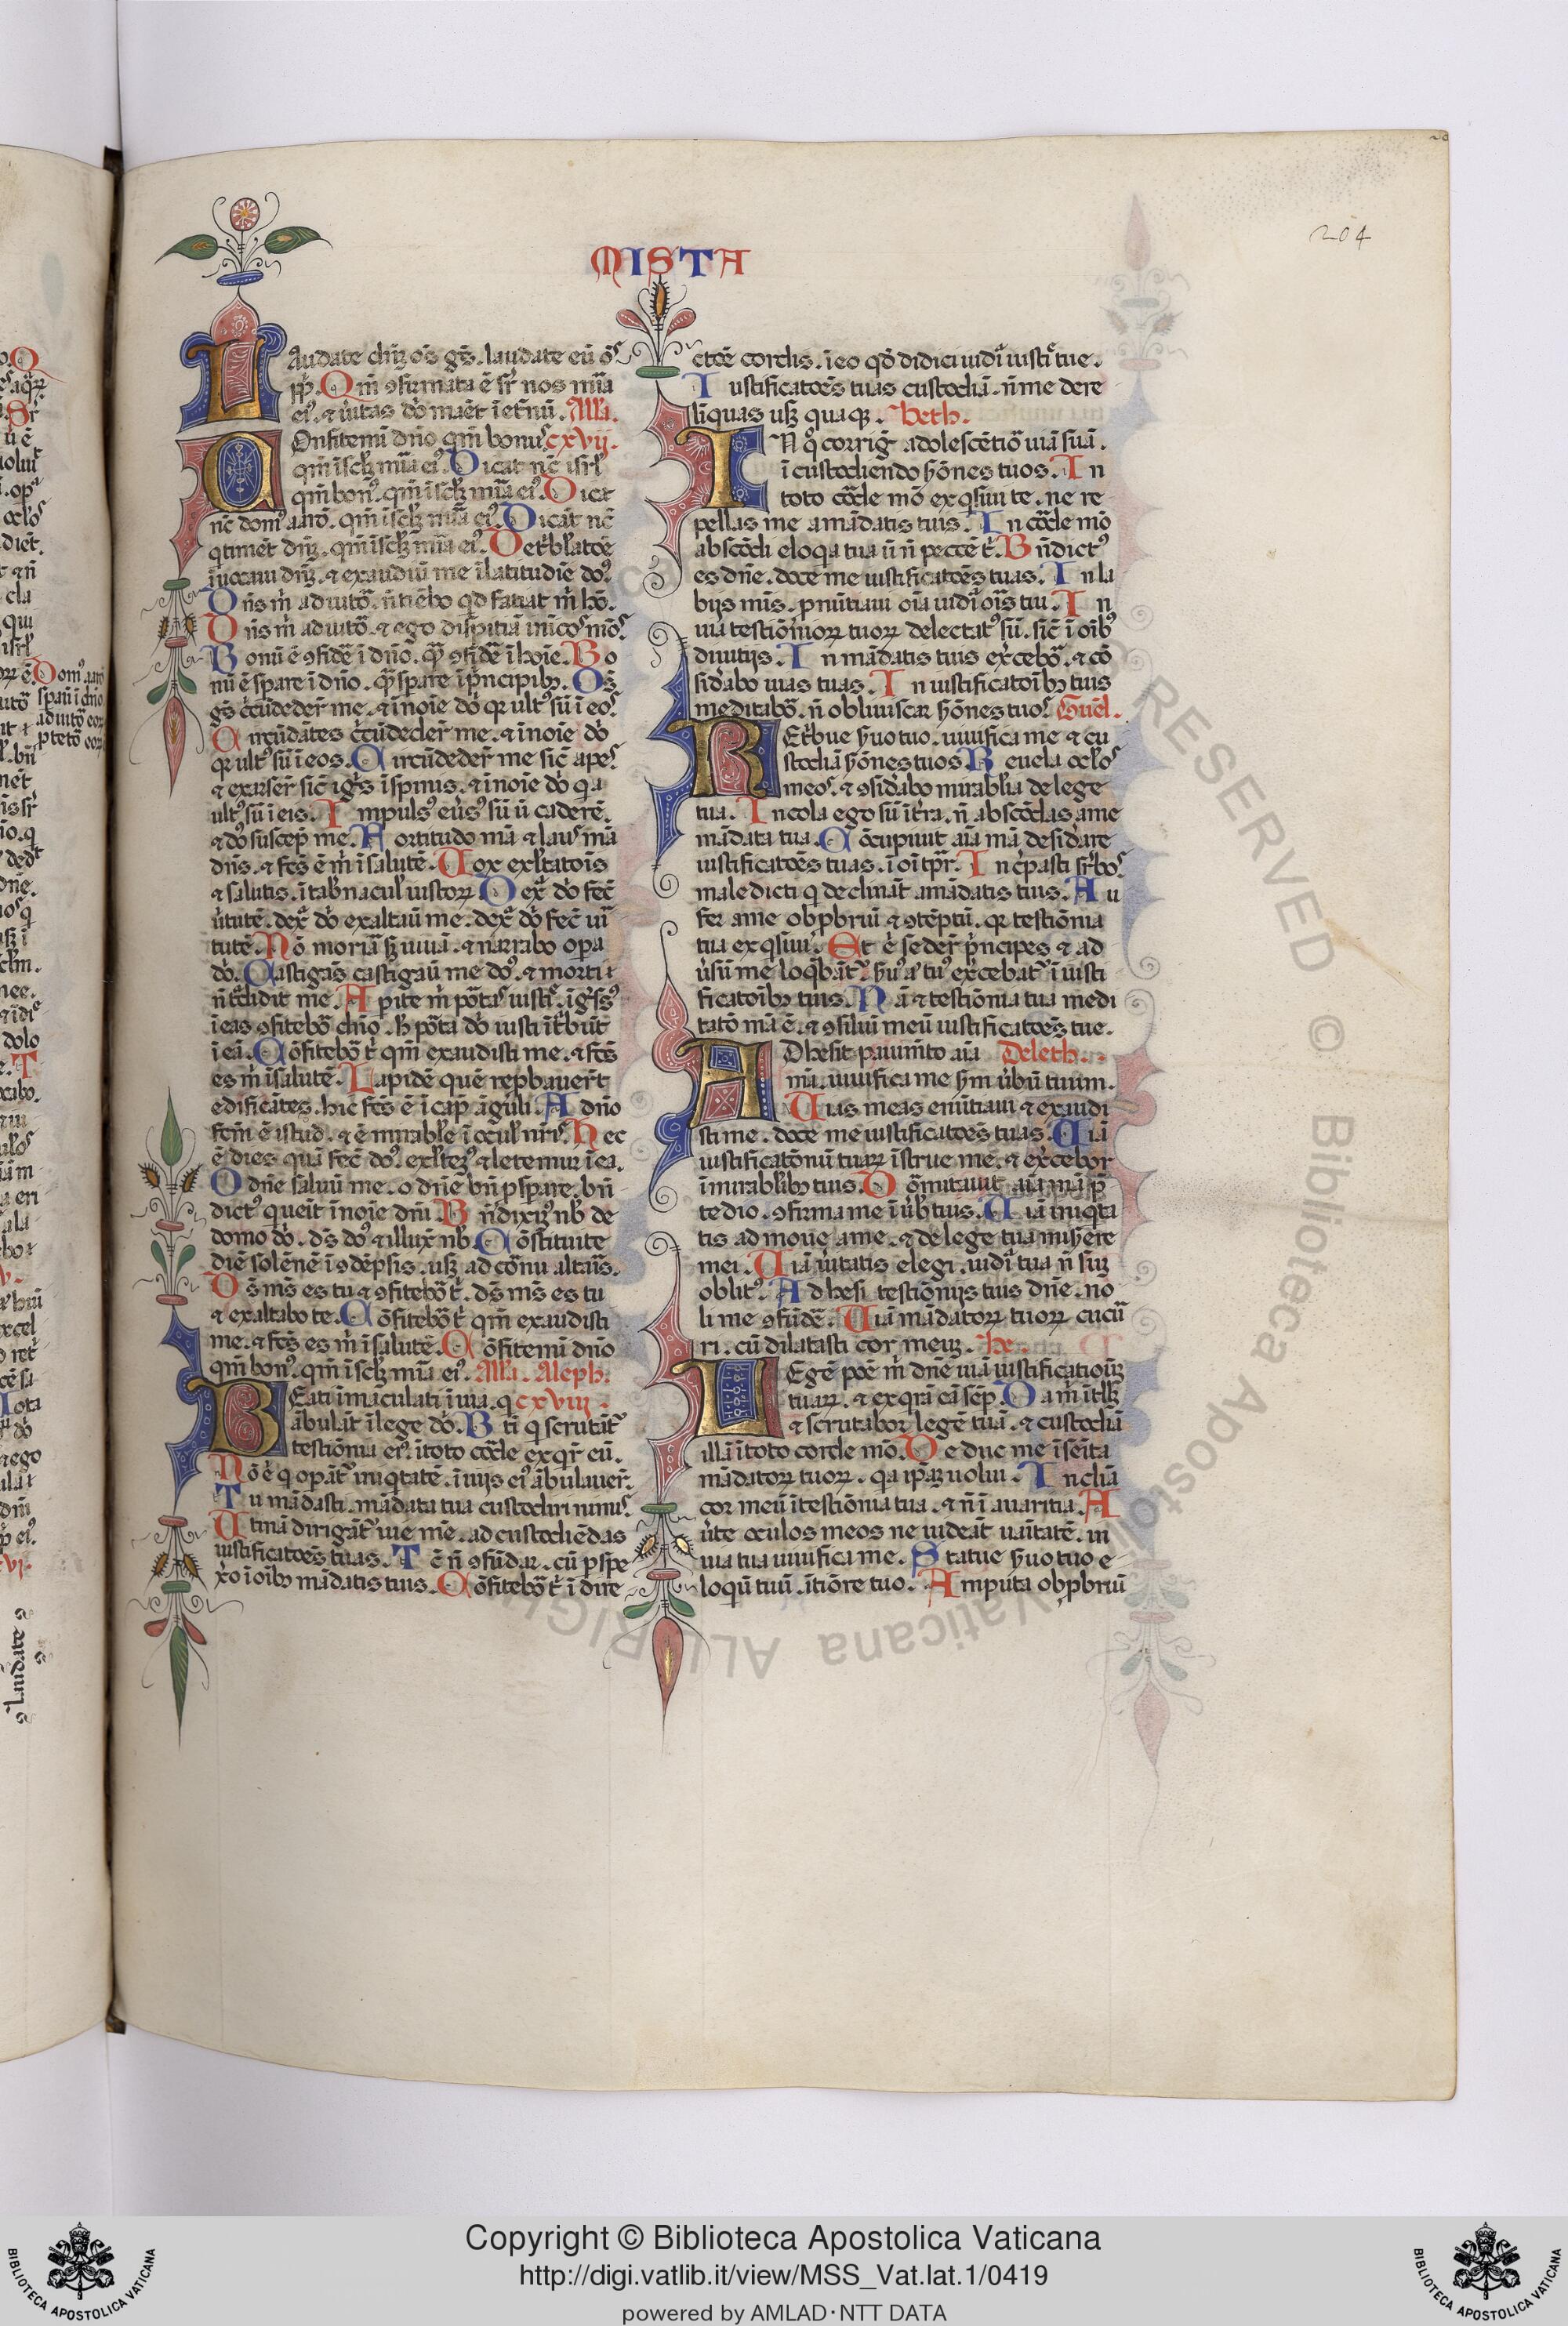 204
MISTA
Laudate dn̄ꝫ oēs gēs. laudate eū oēs
pp̄li. Qm̄ ꝯfirmata ē sr̄ nos mīa
eiꝰ. ⁊ ūitas dn̄i maēt ī etn̄ū. Alla.
Confitemī dn̄o qm̄ bonus cxvij.
qm̄ ī sclꝫ mīa eiꝰ. Dicat nc̄ isrl̄
qm̄ bonꝰ. qm̄ ī sclꝫ mīa eiꝰ. Dicāt
nc̄ domꝰ aarō. qm̄ ī sclꝫ mīa eiꝰ. Dicāt nc̄
q timēt dn̄ꝫ. qm̄ ī sclꝫ mīa eiꝰ. De tribl̄atōe
īuocaui dn̄ꝫ. ⁊ exaudiū me ī latitudīe doꝰ.
Dn̄s m̄ adiutō. ñ tiēbo qd faciat m̄ hō.
Dn̄s m̄ adiutō. ⁊ ego dispiciā inicos mōs.
Bonū ē ꝯfidē ī dn̄o. q̄ꝫ ꝯfidē ī hoīe. Bo
nū ē spare ī dn̄o. q̄ꝫ spare ī pr̄ncipibꝫ. Oēs
gēs cc̄ūdeder̄ me. ⁊ ī noīe dn̄i qr ultꝰ sū ī eos.
Circūdātes cc̄ūdeder̄ me. ⁊ ī noīe dn̄i
qr ultꝰ sū ī eos. Circūdeder̄ me sic̄ apes
⁊ exarser̄ sic̄ igīs ī spinis. ⁊ ī noīe dn̄i qa
ultꝰ sū ī eis. Impulsꝰ eūsꝰ sū ū caderē.
⁊ doꝰ suscep̄ me. Fortitudo mā ⁊ lauˢ mā
dn̄s. ⁊ fcūs ē m̄ ī salutē. Uox exl̄tatōis
⁊ salutis. ī tab̄nacul̄ iustorꝝ. Dexᵃ dn̄i fec̄
ūtutē. dexᵃ dn̄i exaltaū me. dexᵃ dn̄i fec̄ uir
tutē. Nō moriar̄ sꝫ uiuā. ⁊ narrabo opa
dn̄i. Castigās castigaū me doꝰ. ⁊ morti
ñ t̄didit me. Apite m̄ pōtas iustī. īgs̄sꝰ
ī eas ꝯfitebō dn̄o. h̄ pōta dn̄i iusti īt̄būt
ī eā. Cōfitebō t̄ qm̄ exaudisti me. ⁊ fcūs
es m̄ ī salutē. Lapidē quē rep̄bauer̄t
edificātes. hic fcūs ē ī cap̄ āguli. A dn̄o
fcm̄ ē istud. ⁊ ē mirabl̄e ī ocul̄ nr̄is. Hec
ē dies quā fec̄ doꝰ. exl̄temꝰ ⁊ letemur ī ea.
O dn̄e saluū me. o dn̄e bn̄ pspare. bn̄
dictꝰ que īt ī noīe dn̄i. Bn̄dixiꝰ nb̄ de
domo dn̄i. ds̄ doꝰ ⁊ illuxᵗ nb̄. Cōstituite
diē solēnē ī ꝯdēpsis. usꝫ ad cōnu altaīs.
Ds̄ ms̄ es tu ⁊ ꝯfitebō t̄. ds̄ ms̄ es tu
⁊ exaltabo te. Cōfitebō t̄ qm̄ exaudisti
me. ⁊ fcūs es m̄ ī salutē. Cōfitemī dn̄o
qm̄ bonꝰ. qm̄ ī sclꝫ mīa eiꝰ. Alla. Aleph.
Beati īmaculati ī uia. q cxviij.
ābulāt ī lege dn̄i. Bti q scrutāt᷑
testiōnia eiꝰ. ī toto cōde exqr̄t eū.
Nō ē q opāt᷑ iniqtatē. ī uijs eiꝰ ābulauer̄.
Tu mādasti. mādata tua custodiri nimis.
Utinā dirigāt᷑ uie mē. ad custodiēdas
iustificatōes tuas. Tc̄ ñ ꝯfūdar. cū pspe
xo ī oībꝫ mādatis tuis. Cōfitebō t̄ ī dire
ctōe cordis. ī eo qd̄ didici iudīᵃ iustīᵉ tue.
Iustificatōes tuas custodiā. ñ me dere
liquas usꝫ quaqꝫ. Beth.
In qͦ corrigᵗ adolescētiō uiā suā.
ī custodiendo s̄mōnes tuos. In
toto cōde mō exqsiui te. ne re
pellas me a mādatis tuis. In cōde mō
abscōdi eloqa tua ū ñ peccē t̄. Bn̄dictꝰ
es dn̄e. doce me iustificatōes tuas. In la
bijs mīs. pnūtiaui oīa iudīᵃ oīs tui. In
uia testiōniorꝝ tuorꝝ delectatꝰ sū. sic̄ ī oībꝰ
diuitijs. In mādatis tuis ex̄cebō. ⁊ cō
sid̄abo uias tuas. In iustificatōibꝫ tuis
meditabō. ñ obliuiscar s̄mōnes tuos. Gimel.
Ret̄bue s̄uo tuo. uiuifica me ⁊ cu
stodiā s̄mōnes tuos. Reuela oc̄los
meos. ⁊ ꝯsid̄abo mirabl̄ia de lege
tua. Incola ego sū ī t̄ra. ñ abscōdas a me
mādata tua. Cōcupiuit aīa mā desid̄are
iustificatōes tuas. ī oī tp̄r. Inc̄pasti sr̄bos
maledicti q declināt a mādatis tuis. Au
fer a me obp̄briū ⁊ ꝯtēptū. qr testiōnia
tua exqsiui. Et .n. seder̄ pr̄ncipes ⁊ ad
ūsū me loqbāt᷑. s̄uꝰ aᵗ tuꝰ ex̄cebat᷑ ī iusti
ficatōibꝫ tuis. Nā ⁊ testiōnia tua medi
tatō mā ē. ⁊ ꝯsiliū meū iustificatōes tue.
Adhesit pauimēto aīa Deleth.
mā. uiuifica me s̄m ūbū tuum.
Uias meas enūtiaui ⁊ exaudi
sti me. doce me iustificatōes tuas. Uiā
iustificatōnū tuarꝝ īstrue me. ⁊ ex̄cebor
ī mirabl̄ibꝫ tuis. Dōmitauit aīa mā p̄
tedio. ꝯfirma me ī ūb̄ tuis. Uiā iniqta
tis admoue a me. ⁊ de lege tua mis̄ere
mei. Uiā ūitatis elegi. iudīᵃ tua ñ suꝫ
oblitꝰ. Adhesi testiōnijs tuis dn̄e. no
li me ꝯfūdē. Uiā mādatorꝝ tuorꝝ cucur
ri. cū dilatasti cor meuꝫ. He.
Legē pōe m̄ dn̄e uiā iustificationūꝫ
tuarꝝ. ⁊ exqrā eā sēp. Da m̄ ītllꝫ
⁊ scrutabor legē tuā. ⁊ custodiā
illā ī toto corde mō. Deduc me ī sēita
mādatorꝝ tuorꝝ. qa ip̄aꝫ uolui. Inclīa
cor meū ī testiōnia tua. ⁊ ñ ī auaritia. A
ūte oculos meos ne uideāt uaītatē. in
uia tua uiuifica me. Statue s̄uo tuo e
loqū tuū. ī tiōre tuo. Amputa obp̄briū
Copyright © Biblioteca Apostolica Vaticana
http://digi.vatlib.it/view/MSS_Vat.lat.1/0419
powered by AMLAD·NTT DATA
BIBLIOTECA APOSTOLICA VATICANA
BIBLIOTECA APOSTOLICA VATICANA